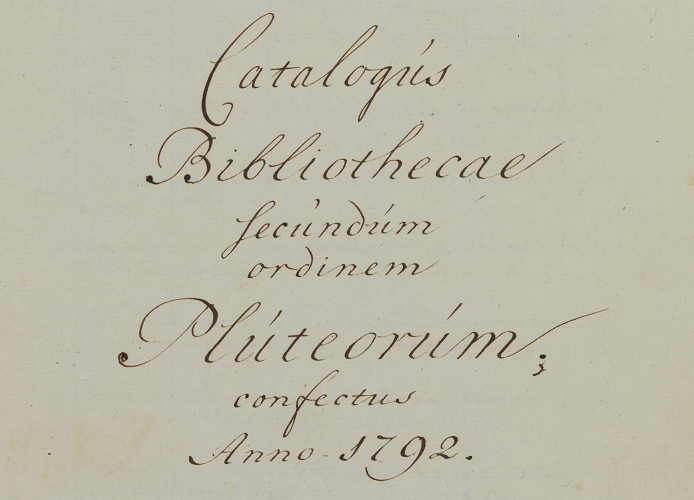 Catalogús
Bibliothecae
secúndúm
ordinem
Plúteorúm;
confectus
Anno 1792.